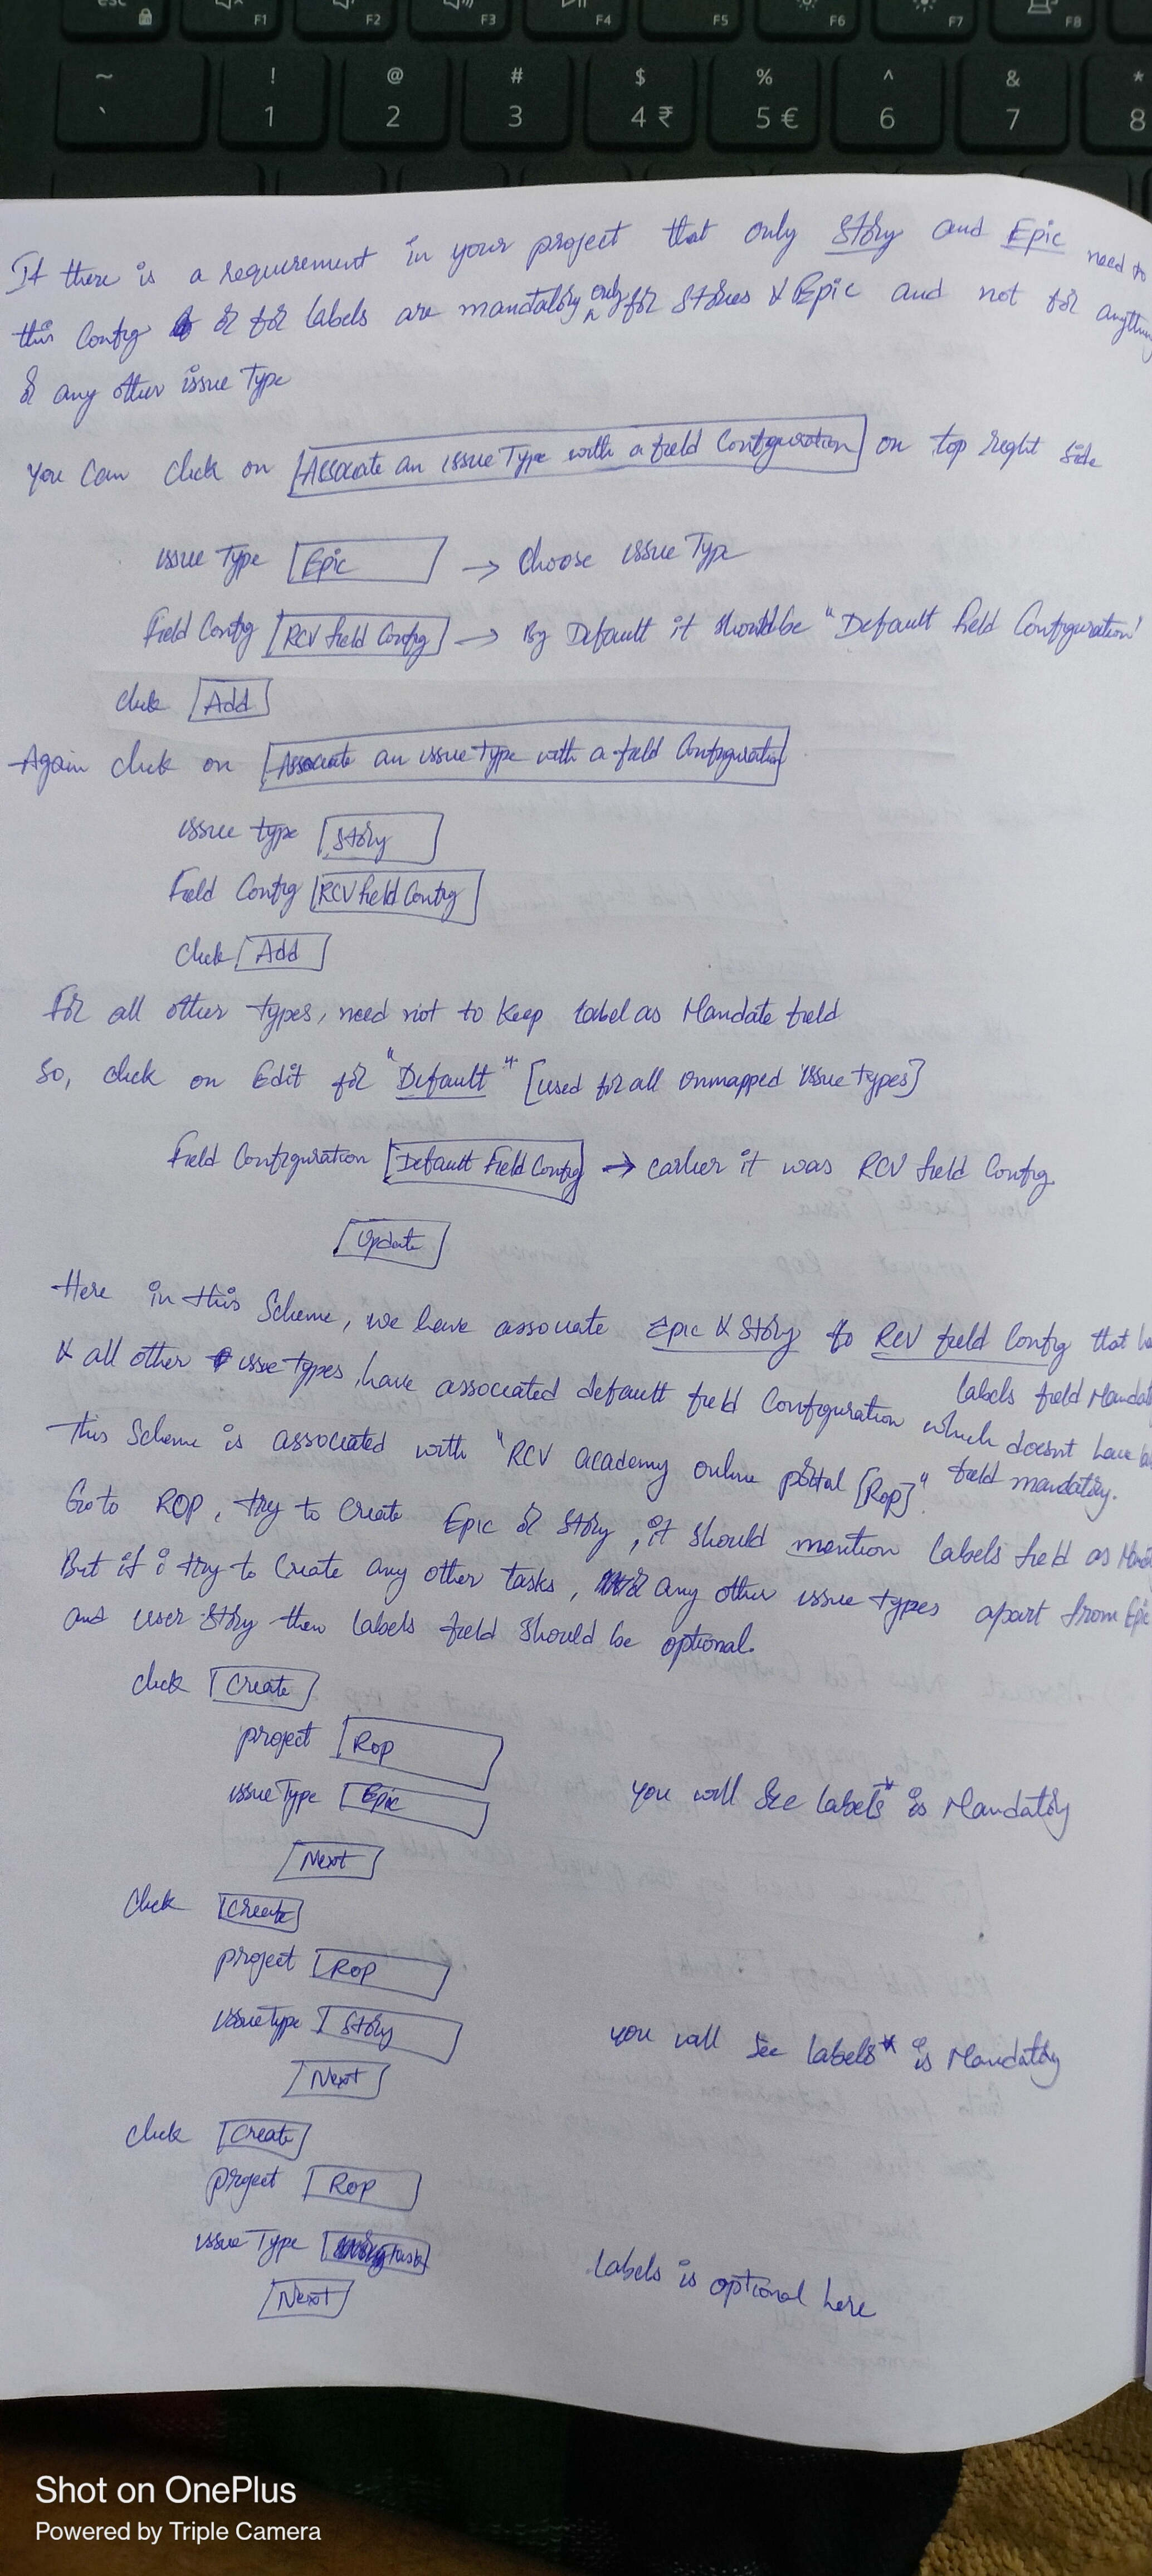 esc F1 F2 F3 F4 F5 F6 F7 F8
~ ! @ # $ % ^ & *
` 1 2 3 4 ₹ 5 € 6 7 8
If there is a requirement in your project that only Story and Epic need to
this Config or for labels are mandatory only for Stories & Epic and not for anything
or any other issue Type
You can click on [Associate an issue Type with a field Configuration] on top right side
issue Type [Epic] → Choose issue Type
Field Config [RCV field Config] → By Default it should be "Default field Configuration"
click [Add]
Again click on [Associate an issue type with a field Configuration]
issue type [Story]
Field Config [RCV field Config]
Click [Add]
For all other types, need not to keep label as Mandate field
So, click on Edit for "Default" [used for all unmapped issue types]
Field Configuration [Default Field Config] → earlier it was RCV field Config.
[Update]
Here in this Scheme, we have associate Epic & Story to RCV field Config that
labels field
& all other issue types, have associated default field Configuration which doesnt have
field mandatory.
This Scheme is associated with "RCV academy online portal [Rop]"
Goto ROP, try to create Epic or Story, it should mention labels field as
But if i try to Create any other tasks, any other issue types apart from Epic
and user story then labels field should be optional.
click [Create]
project [Rop]
issue Type [Epic] you will see labels* is Mandatory
[Next]
Click [Create]
project [Rop]
issue type [Story] you will see labels* is Mandatory
[Next]
click [Create]
project [Rop]
issue Type [task] Labels is optional here
[Next]
Shot on OnePlus
Powered by Triple Camera